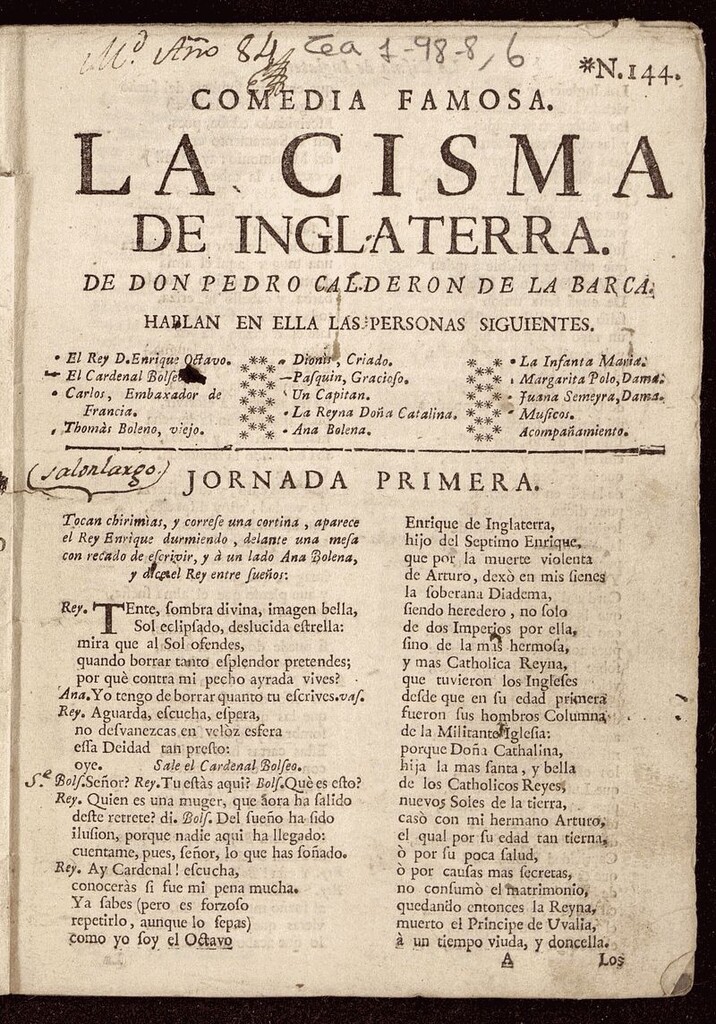 Md Año 84 Tea 1-98-8, 6
*N.144.
COMEDIA FAMOSA.
LA CISMA
DE INGLATERRA.
DE DON PEDRO CALDERON DE LA BARCA.
HABLAN EN ELLA LAS PERSONAS SIGUIENTES.
El Rey D.Enrique Octavo.
El Cardenal Bolseo
Carlos, Embaxador de
Francia.
Thomàs Boleno, viejo.
Dionis, Criado.
Pasquin, Gracioso.
Un Capitan.
La Reyna Doña Catalina.
Ana Bolena.
La Infanta Maria.
Margarita Polo, Dama.
Juana Semeyra, Dama.
Musicos.
Acompañamiento.
(salon largo)
JORNADA PRIMERA.
Tocan chirimìas, y correſe una cortina, aparece
el Rey Enrique durmiendo, delante una meſa
con recado de eſcrivir, y à un lado Ana Bolena,
y dice el Rey entre ſueños:
Rey. TEnte, ſombra divina, imagen bella,
Sol eclipſado, deslucida eſtrella:
mira que al Sol ofendes,
quando borrar tanto eſplendor pretendes;
por què contra mi pecho ayrada vives?
Ana. Yo tengo de borrar quanto tu eſcrives. vaſ.
Rey. Aguarda, eſcucha, eſpera,
no deſvanezcas en velòz esfera
eſſa Deidad tan preſto:
oye. Sale el Cardenal Bolſeo.
S.e Bolſ. Señor? Rey. Tu eſtàs aqui? Bolſ. Què es eſto?
Rey. Quien es una muger, que àora ha ſalido
deſte retrete? di. Bolſ. Del ſueño ha ſido
iluſion, porque nadie aqui ha llegado:
cuentame, pues, ſeñor, lo que has ſoñado.
Rey. Ay Cardenal! eſcucha,
conoceràs ſi fue mi pena mucha.
Ya ſabes (pero es forzoſo
repetirlo, aunque lo ſepas)
como yo ſoy el Octavo
Enrique de Inglaterra,
hijo del Septimo Enrique,
que por la muerte violenta
de Arturo, dexò en mis ſienes
la ſoberana Diadema,
ſiendo heredero, no ſolo
de dos Imperios por ella,
ſino de la mas hermoſa,
y mas Catholica Reyna,
que tuvieron los Ingleſes
deſde que en ſu edad primera
fueron ſus hombros Columna
de la Militante Igleſia:
porque Doña Cathalina,
hija la mas ſanta, y bella
de los Catholicos Reyes,
nuevos Soles de la tierra,
casò con mi hermano Arturo,
el qual por ſu edad tan tierna,
ò por ſu poca ſalud,
ò por cauſas mas ſecretas,
no conſumò el matrimonio,
quedando entonces la Reyna,
muerto el Principe de Uvalia,
à un tiempo viuda, y doncella.
A Los